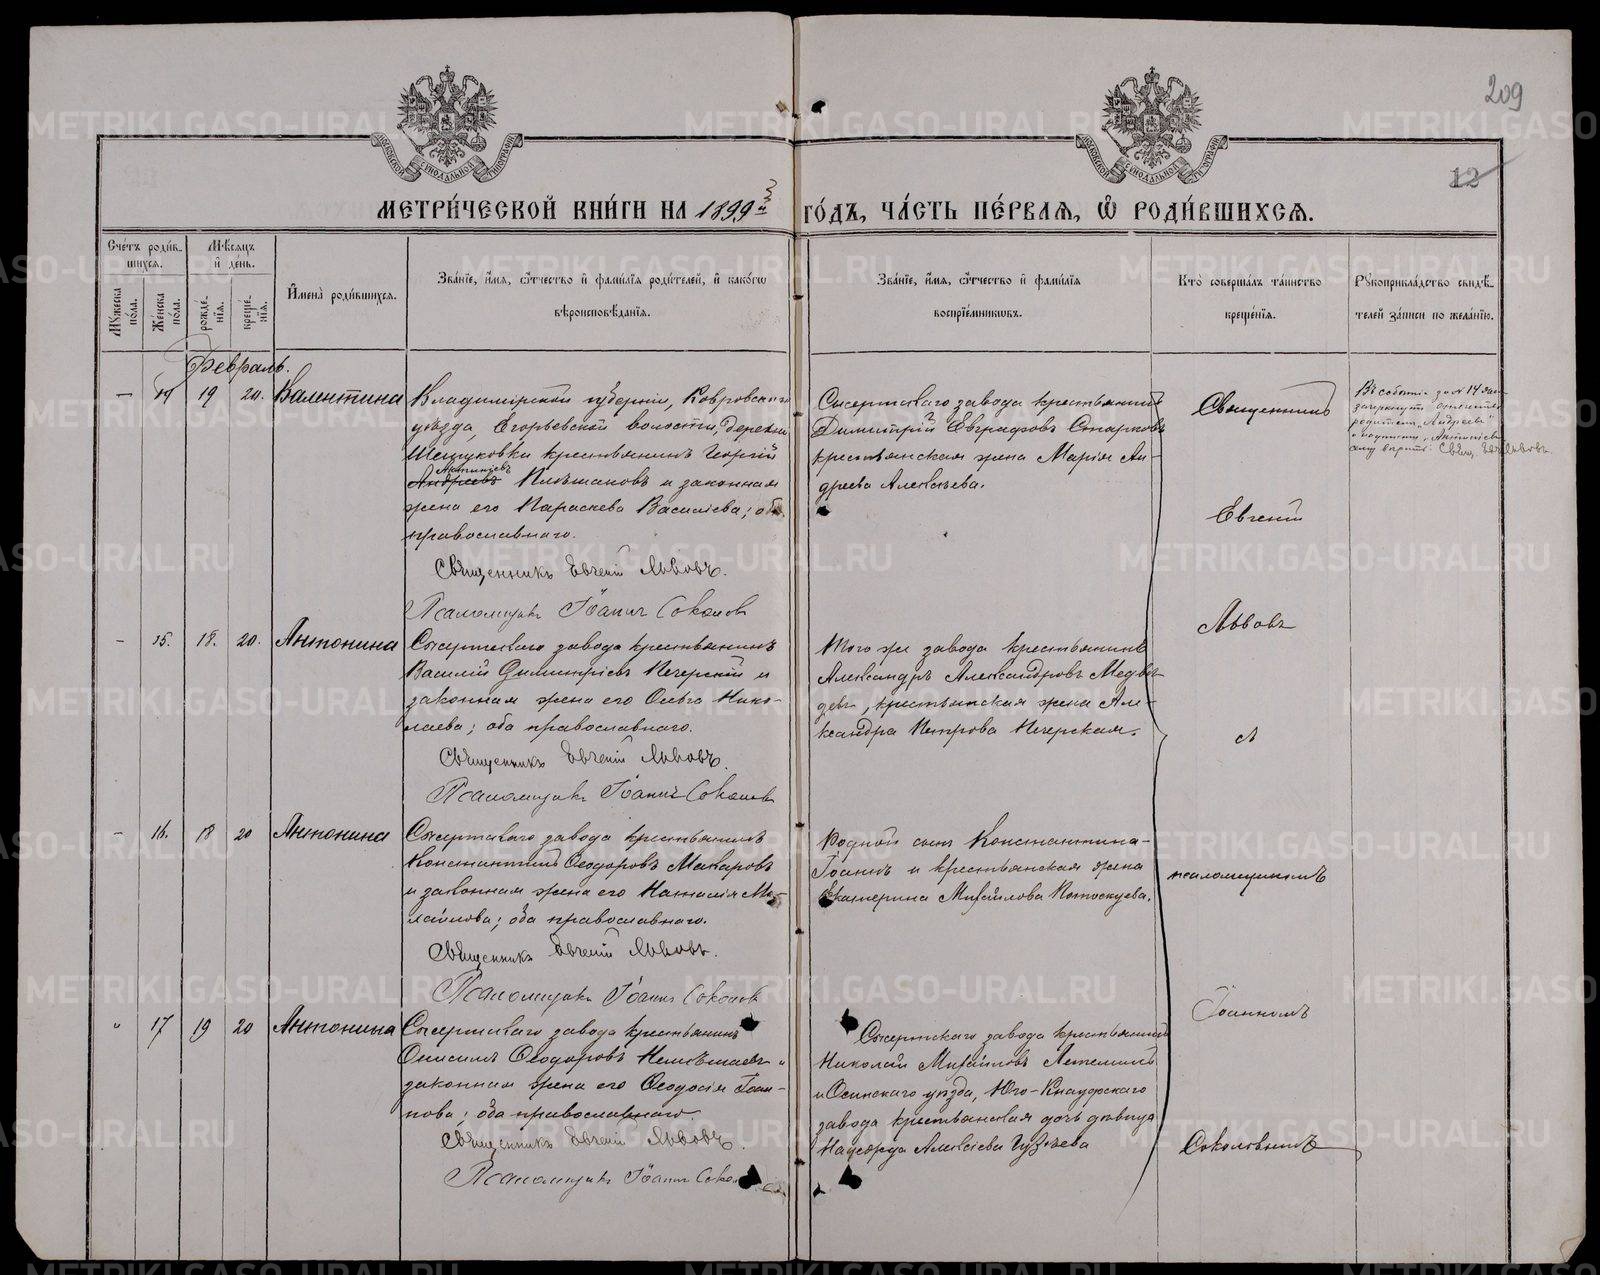 209
12
МЕТРИ́ЧЕСКОЙ КНИ́ГИ НА 1899 й ГО́ДЪ, ЧА́СТЬ ПЕ́РВАЯ, Ѡ҆ РОДИ́ВШИХСЯ.
Сче́тъ роди́вшихся.
Мѣ́сяцъ и҆ де́нь.
И҆мена̀ роди́вшихся.
Зва́нїе, и҆́мя, ѻ҆́тчество и҆ фами́лїя роди́телей, и҆ како́гѡ
вѣроисповѣ́данїя.
Зва́нїе, и҆́мя, ѻ҆́тчество и҆ фами́лїя
воспрїе́мникѡвъ.
Кто̀ соверша́лъ та́инство
креще́нїя.
Рꙋкоприкла́дство свидѣ́-
телей за́писи по жела́нїю.
Мꙋ́жеска по́ла.
Же́нска по́ла.
рожде́нїя.
креще́нїя.
Февраль.
14 19 20. Валентина
Владимірской губерніи, Ковровскаго
уѣзда, Егорьевской волости, деревни
крестьянинъ Георгій
Антипіевъ
Андреевъ и законная
жена его Параскева Василіева; оба
православнаго.
Священникъ Евгеній Львовъ.
Псаломщикъ Іоаннъ Соколовъ
Сысертскаго завода крестьянинъ
Димитрій Евграфовъ Старковъ
крестьянская жена Марія Ан-
дреева
Священникъ
Евгеній
Львовъ
съ
псаломщикомъ
Іоанномъ
Соколовымъ
Въ событіи за № 14
зачеркнуто
родителя „Андреевъ“
Свящ. Евг. Львовъ
15. 18. 20. Антонина
Сысертскаго завода крестьянинъ
Василій Димитріевъ Печерскій и
законная жена его Ольга Нико-
лаева; оба православнаго.
Священникъ Евгеній Львовъ.
Псаломщикъ Іоаннъ Соколовъ
Того же завода крестьянинъ
Александръ Александровъ Медвѣ-
девъ, крестьянская жена Але-
ксандра Петрова Печерская.
16. 18 20 Антонина
Сысертскаго завода крестьянинъ
Константинъ Ѳеодоровъ Макаровъ
и законная жена его Наталія Ми-
хайлова; оба православнаго.
Священникъ Евгеній Львовъ.
Псаломщикъ Іоаннъ Соколовъ
Родной сынъ Константина-
Іоаннъ и крестьянская жена
Екатерина Михайлова Потоскуева.
17 19 20 Антонина
Сысертскаго завода крестьянинъ
Онисимъ Ѳеодоровъ и
законная жена его Ѳеодосія Іоан-
нова; оба православнаго
Священникъ Евгеній Львовъ.
Псаломщикъ Іоаннъ Сокол
Сысертскаго завода крестьянинъ
Николай Михайловъ Летеминъ
и Осинскаго уѣзда, Юго-Кнауфскаго
завода крестьянская дочь дѣвица
Надежда Алексіева